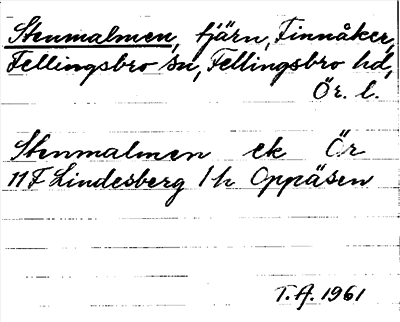 Stenmalmen, tjärn, Finnåker,
Fellingsbro sn, Fellingsbro hd,
Ör. l.
Stenmalmen ek Ör
11F Lindesberg 1h Oppåsen
T.A. 1961